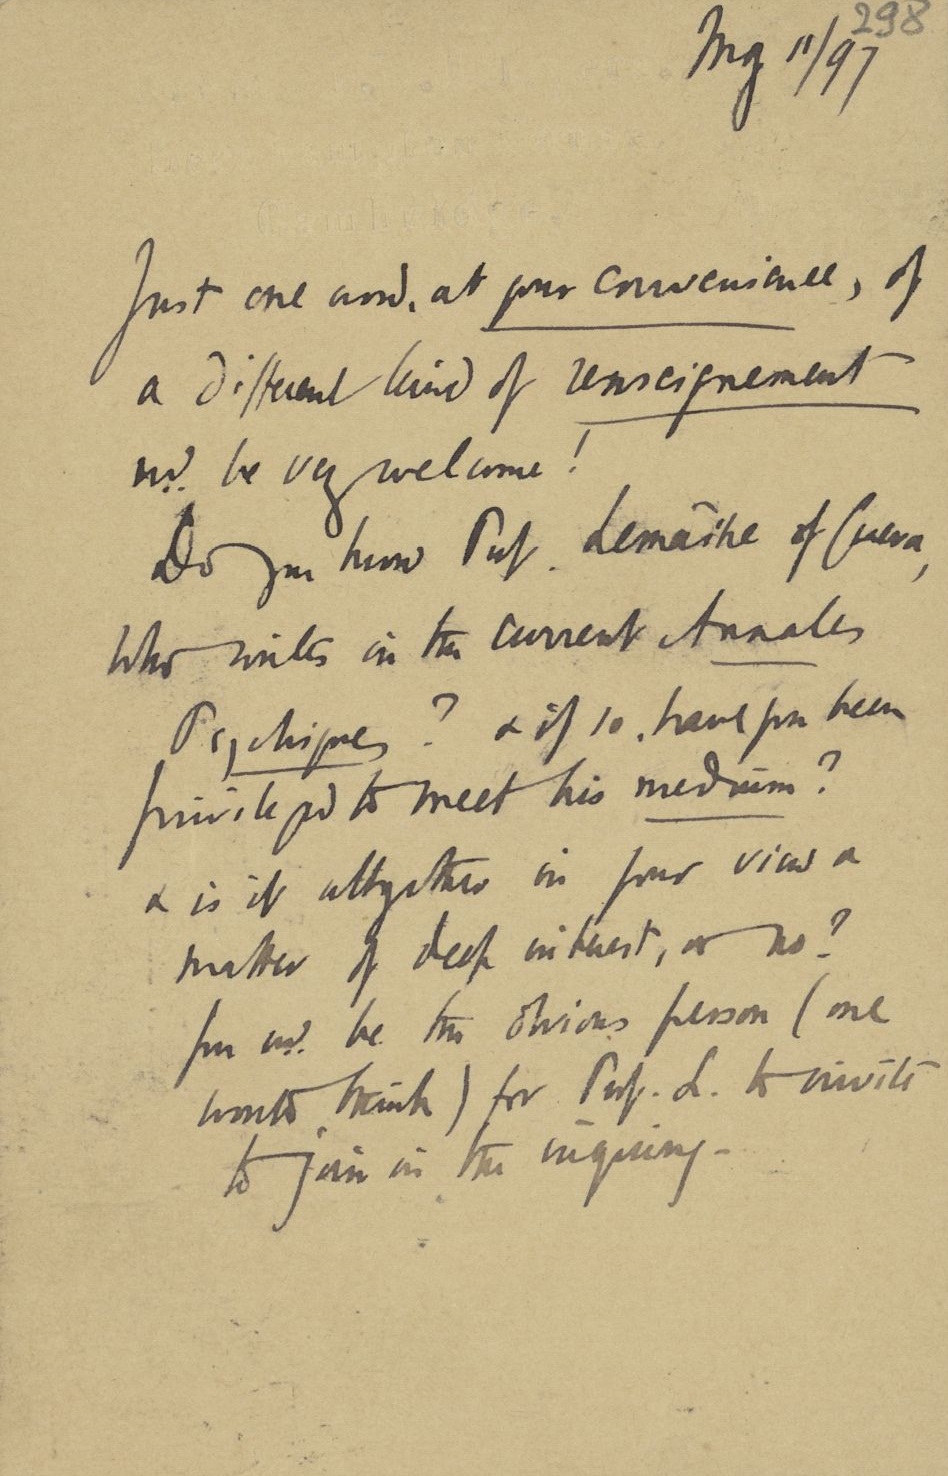 298
My 11/97
Just one word, at your convenience, of
a different kind of renseignement
wd. be very welcome!
Do you know Prof. Lemaître of Geneva,
who writes in the current Annales
Psychiques? & if so, have you been
privileged to meet his medium?
& is it altogether in your view a
matter of deep interest, or no?
You wd. be the obvious person (one
would think) for Prof. L. to invite
to join in the inquiry -